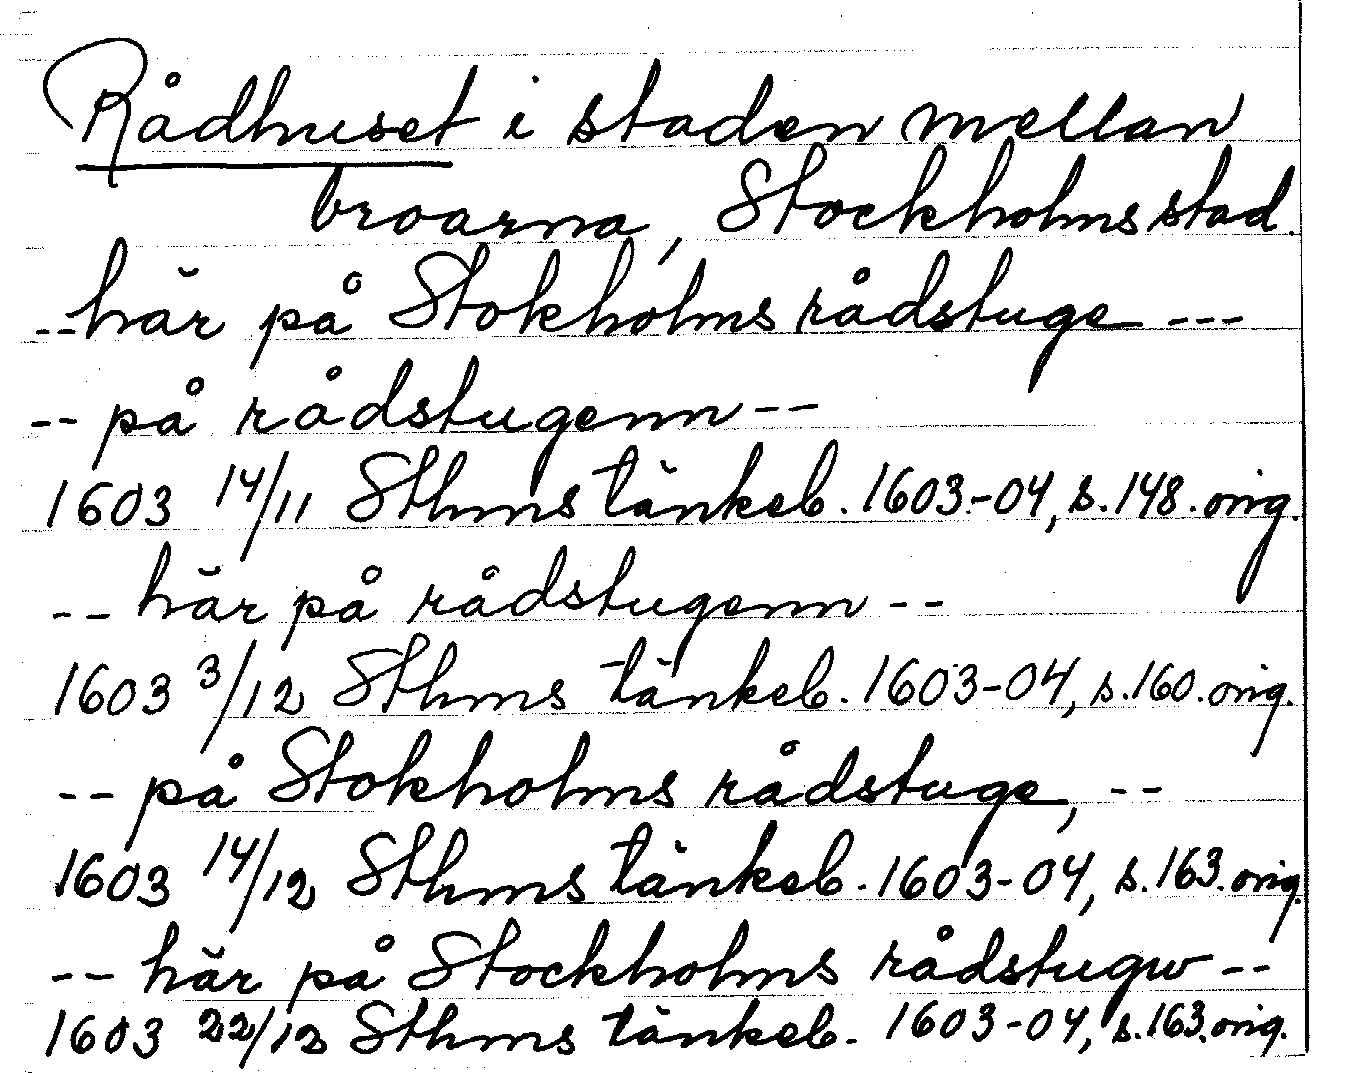 Rådhuset i staden mellan
broarna, Stockholms stad.
-- här på Stokholms rådstuge ---
-- på rådstugenn --
1603 14/11 Sthms tänkeb. 1603-04, s. 148. orig.
-- här på rådstugenn --
1603 3/12 Sthms tänkeb. 1603-04, s. 160. orig.
-- på Stokholms rådstuge, --
1603 14/12 Sthms tänkeb. 1603-04, s. 163. orig.
-- här på Stockholms rådstugw --
1603 22/12 Sthms tänkeb. 1603-04, s. 163. orig.